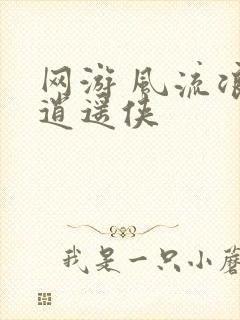 网游风流浪
逍遥侠
我是一只小蘑